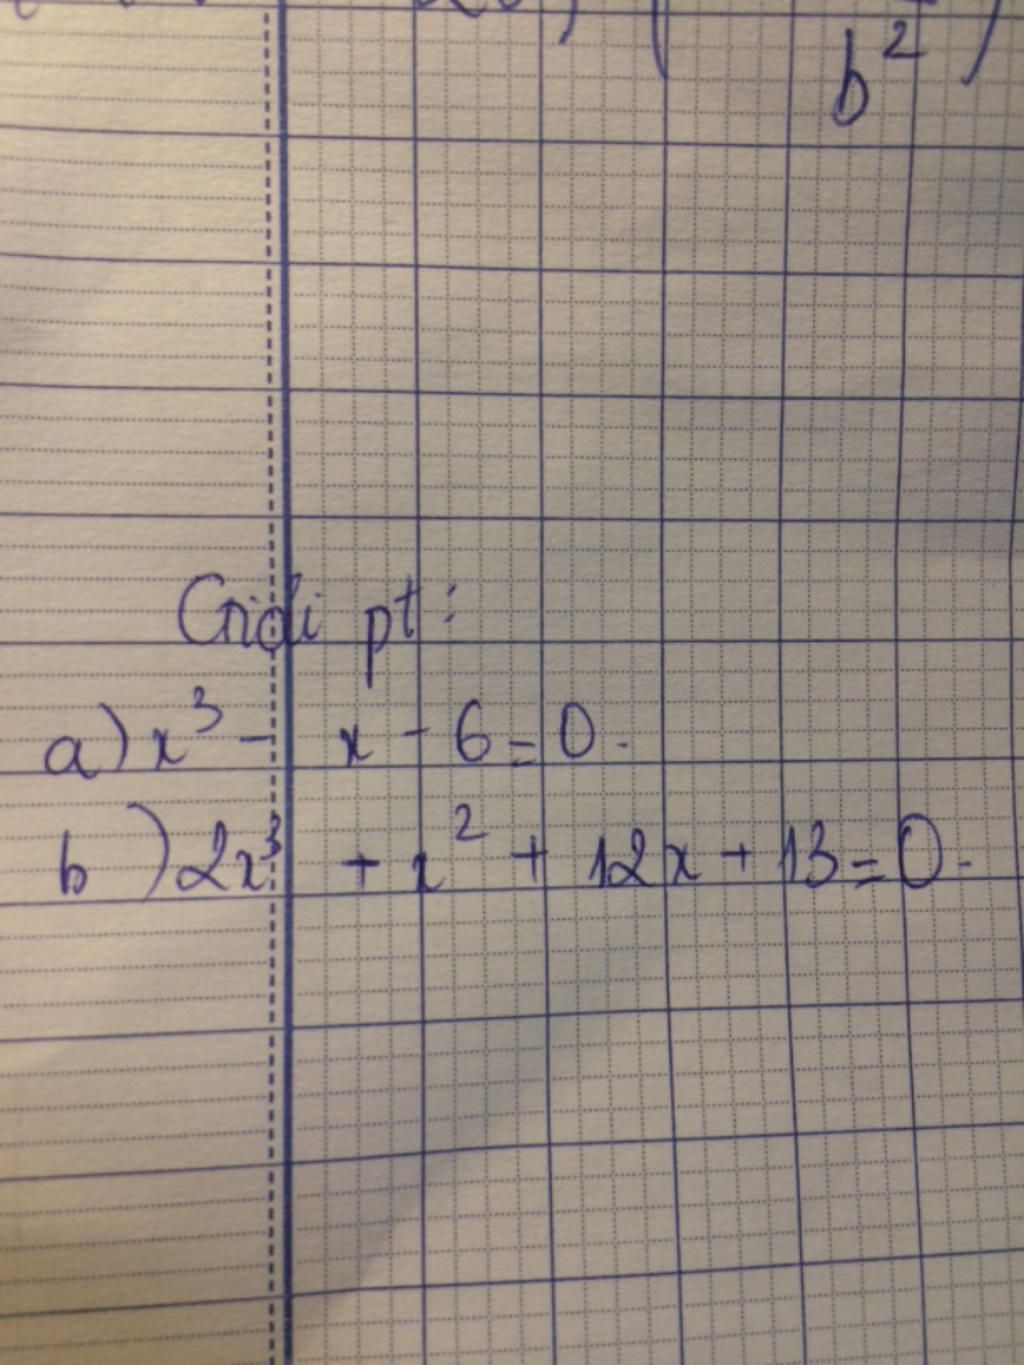 b²
Giải pt:
a) x³ - x - 6 = 0.
b) 2x³ + x² + 12x + 13 = 0.